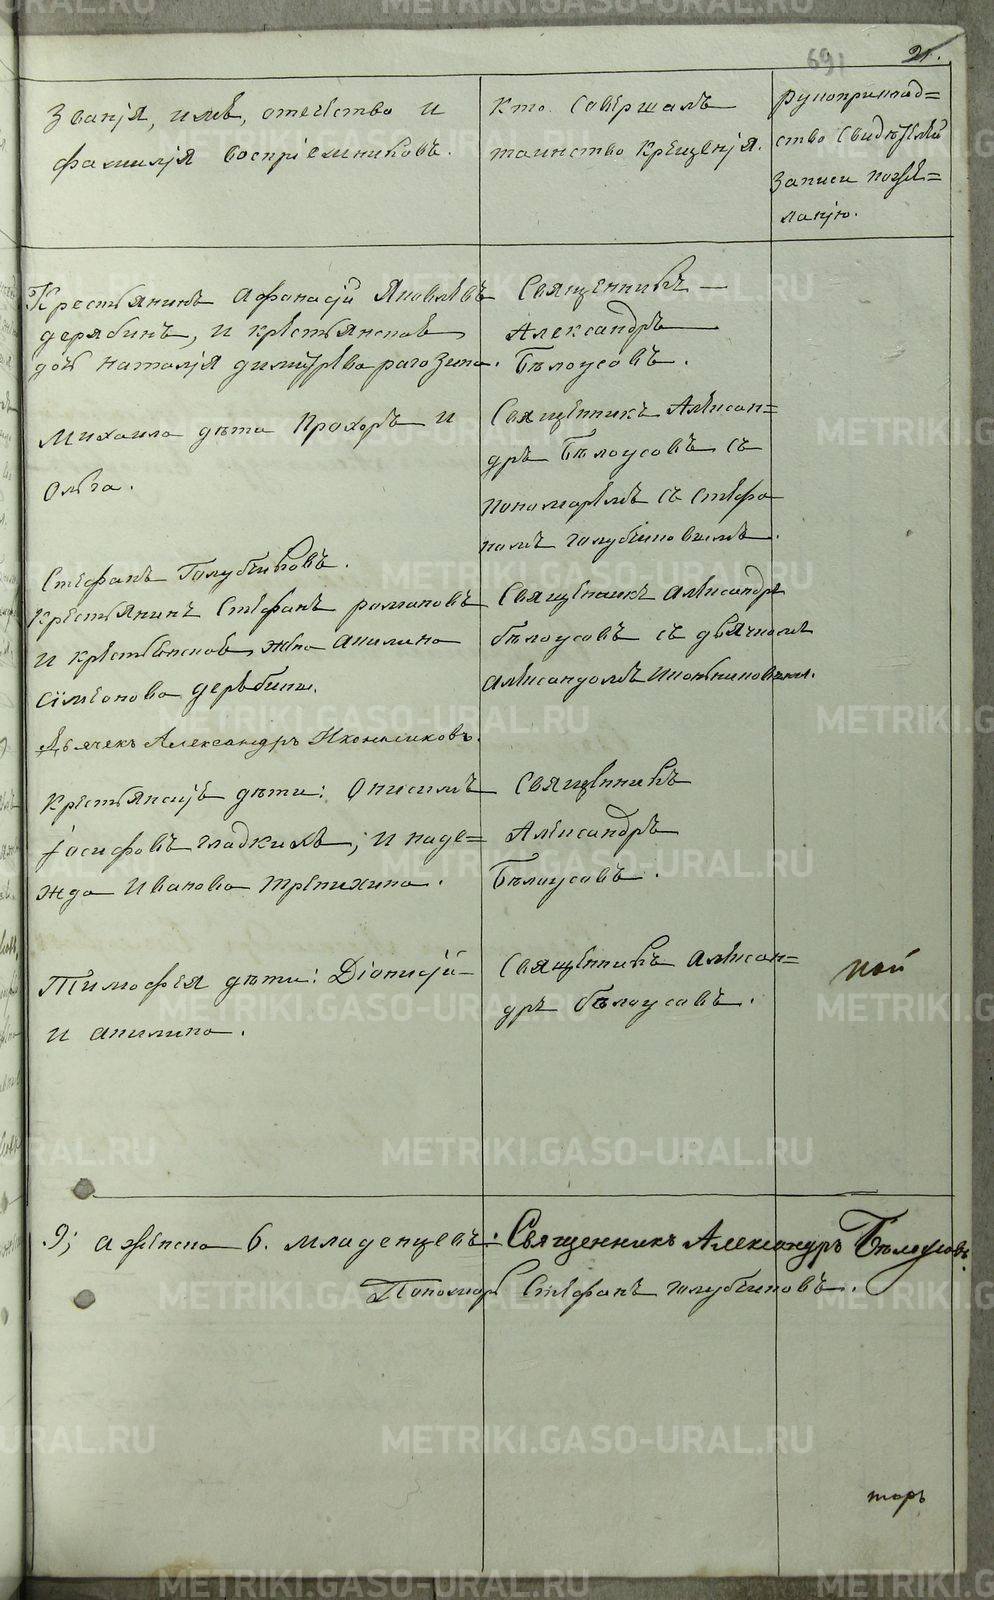 691
21.
Званія, имѣ, отечество и
фамилія воспріемниковъ.
Кто совершалъ
таинство крещенія.
рукоприклад=
ство свидѣтелей
записи по же=
ланію.
Крестьянинъ Афанасій Яковлевъ
дерябинъ, и крестьянская
дочь наталія димитріева рагозина.
Священникъ
Александръ
Бѣлоусовъ.
Михаила дѣти Прохоръ и
Ольга.
Священникъ Алексан=
дръ Бѣлоусовъ съ
пономаремъ съ стефа
номъ голубчиковымъ.
Стефанъ Голубчиковъ.
Крестьянинъ Стефанъ романовъ
и крестьянская жена акилина
сімеонова дерябина.
Священникъ александръ
бѣлоусовъ съ дьячкомъ
александромъ иконниковымъ.
Дьячекъ Александръ Иконниковъ.
Крестьянскіе дѣти: Онисимъ
іосифовъ гладкихъ, и наде=
жда Иванова трепихина.
Священникъ
Александръ
Бѣлоусовъ.
Тимофея дѣти: Діонисій
и акилина.
Священникъ Алексан=
дръ бѣлоусовъ.
кой
9; а женска 6. младенцевъ: Священникъ Александръ Бѣлоусовъ.
Пономарь Стефанъ голубчиковъ.
торъ
METRIKI.GASO-URAL.RU